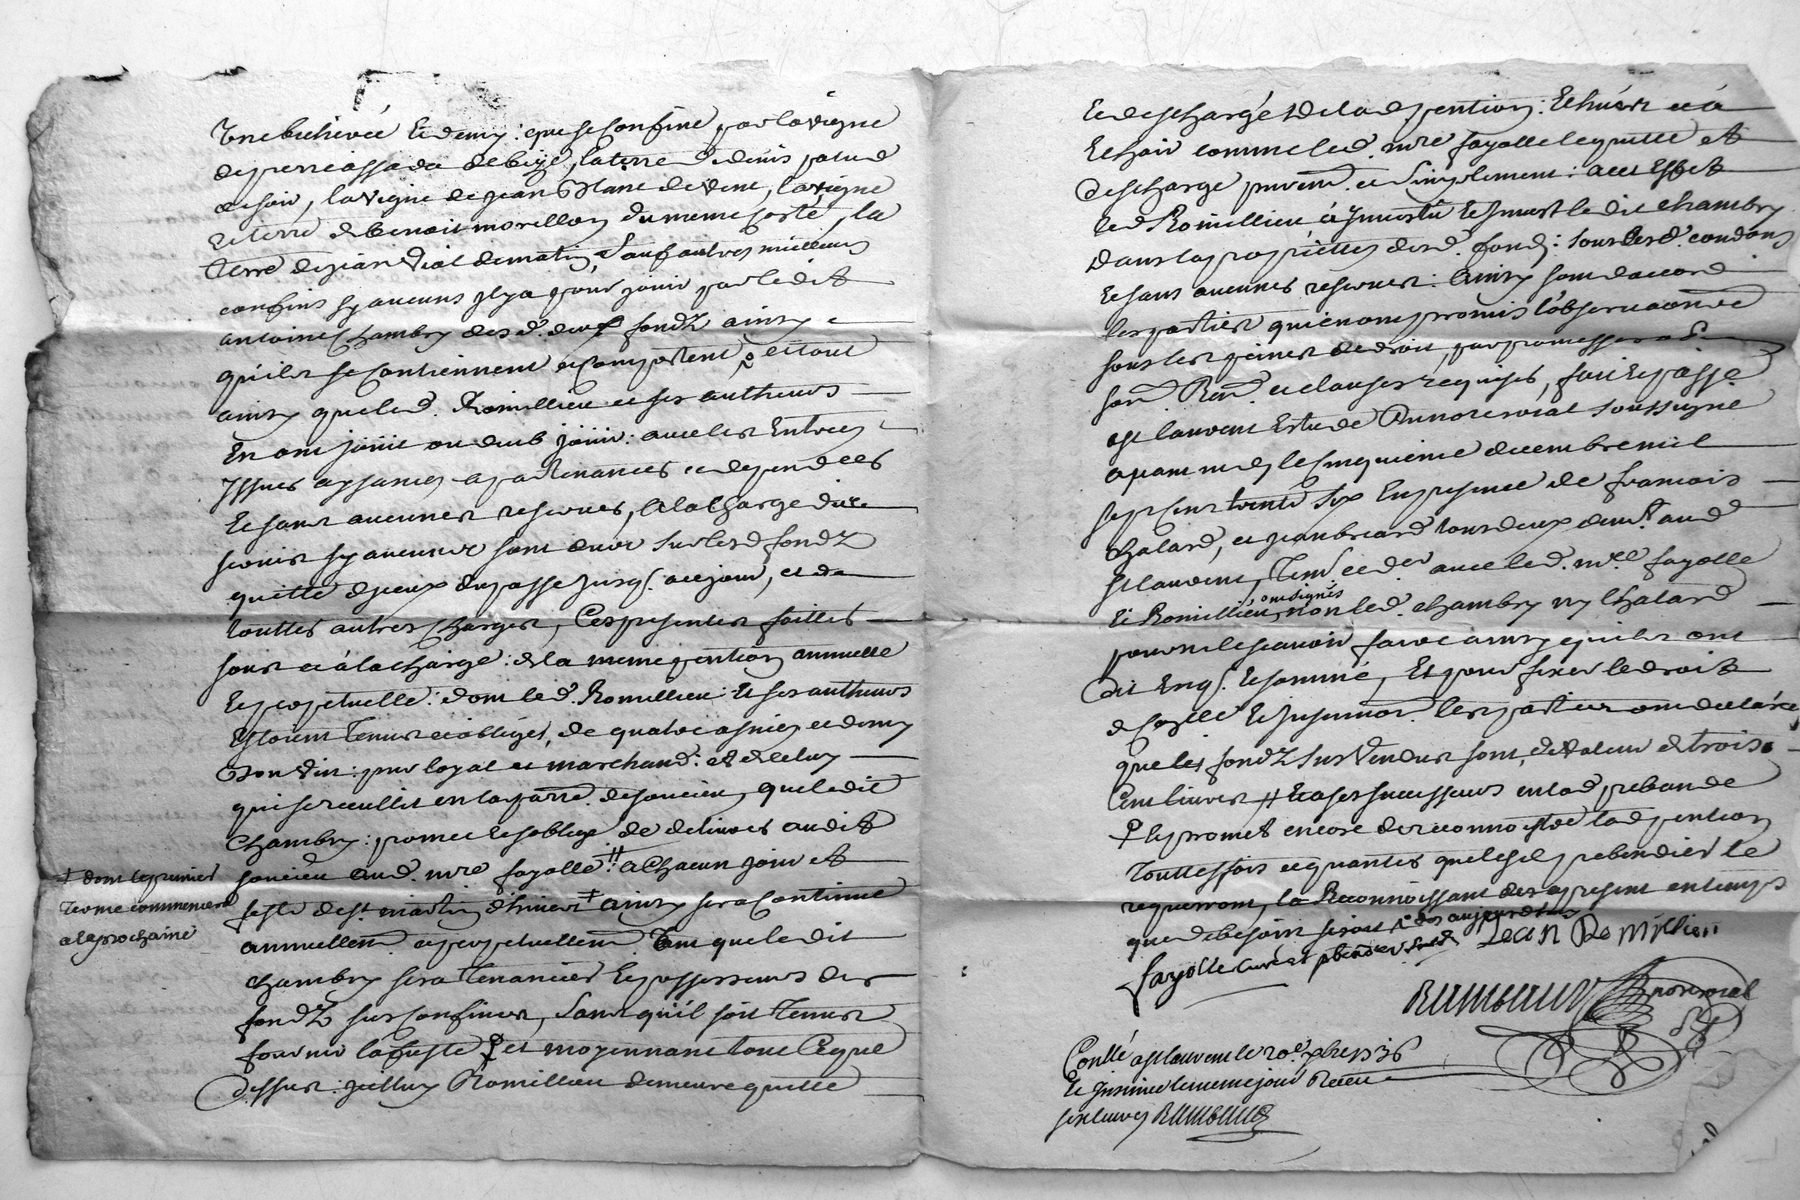 une bicherée et demy : que se confine par la vigne
de pierre assada de bize, la terre de denis patud
de soir, la vigne de jean blanc de vent, la vigne
et terre de benoit morillon du meme costé, la
terre de jean vial de matin, sauf autres meilleurs
confins sy aucuns il y a pour jouir par ledit
antoine chambry desd. deux fondz ainsy
qu'ils se contiennent et comportent, et tout
ainsy que led. Romillieu et ses autheurs
en ont jouit ou deub jouir : avec les Entrées
issues aysances apartenances et dependces
et sans aucunes reserves, a la charge du
servis sy aucuns sont dûs sur lesd. fondz
quitte d'yceux du passé jusq. a ce jour, et de
touttes autres charges, Ces presentes faittes
sous et à la charge : de la meme pention annuelle
et perpetuelle : dont led. Romillieu et ses autheurs
Estoient tenus et obligés, de quatre asnées et demy
bon vin : pur loyal et marchand : et de celuy
qui se recueillit en la parre. de soucieu, que ledit
Chambry : promet et s'oblige de delivrer audit
soucieu aud. mre fayolle # a chacun jour et
feste de st. martin d'hiver + ainsy sera continué
annuellemt. et perpetuellemt. tant que ledit
chambry sera tenancier et possesseurs des
fondz sus confines, sans qu'il soit tenus
fournir la fuste et moyennant tout ce que
dessus : jcelluy Romillieu demeure quitte
+ dont le premier
terme commencera
a la prochaine
et deschargé de lad. pention : Echûës et à
Echoir comme led. mre fayolle le quitte et
descharge puremt. et simplement : a cet effet
led. Romillieu à Jnvestû et Jnvest ledit chambry
dans la proprietté desd. fondz : sous lesd. condōns
et sans aucunes reserves : Ainsy sont d'accord
les parties qui en ont promis l'observaōn
sous les peines de droit, par promesses
soum. Ren. et clauses requises, fait et passé
a st laurent Estude du no.re royal soussigné
avant midy le cinquieme decembre mil
sept cens trente six En presence de francois
chalard, et jean breard tous deux demt. aud.
st laurent, tems. avec led. mre. fayolle
et Romillieu ont signés, non led. chambry ny chalard
pour ne le scavoir faire ainsy qu'ils ont
dit Enq. et sommé, Et pour fixer le droit
de coelle et jnsinuaon. les parties ont declaré
que les fondz sus vendus sont de valeur de trois
Cent livres # et a ses successeurs en lad. prebande
& promet encore de reconnoistre lad. pention
touttes fois et quantes que les prebendier le
requerront, la Reconnoissant des a present en temps
que de besoin seroit
fayolle curé et prebendier susd. Jean Romillieu
Rambaud no.re royal
Conllé a st laurent le 20e. xbre 1736
et Jnsinué le meme jour Receu
six livres Rambaud